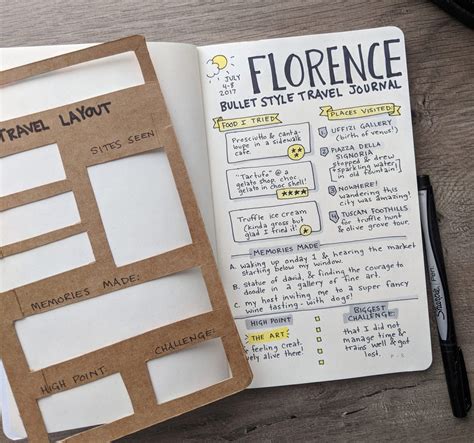 TRAVEL LAYOUT
SITES SEEN
MEMORIES MADE:
HIGH POINT:
CHALLENGE:
JULY
4-8
2017
FLORENCE
BULLET STYLE TRAVEL JOURNAL
FOOD I TRIED
Prosciutto & canta-
loupe in a sidewalk
cafe.
"Tartufo" @ a
gelato shop. choc.
gelato in choc shell!
Truffle ice cream
(Kinda gross but
glad I tried it!)
PLACES VISITED
1 UFFIZI GALLERY
(birth of venus!)
2 PIAZZA DELLA
SIGNORIA
stopped & drew
sparkling water
in old fountain
3 NOWHERE!
wandering this
city was amazing!
4 TUSCAN FOOTHILLS
for truffle hunt
& olive grove tour.
MEMORIES MADE
A. waking up day 1 & hearing the market
starting below my window.
B. Statue of david, & finding the courage to
doodle in a gallery of fine art.
C. my host inviting me to a super fancy
wine tasting - with dogs!
HIGH POINT
THE ART
feeling creat-
ively alive there!
BIGGEST
CHALLENGE:
that I did not
manage time &
trains well & got
lost.
Sharpie